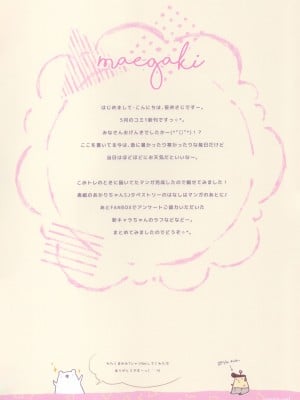 maegaki
はじめまして・こんにちは、
5月のコミ1新刊ですっ✧*。
みなさんおげんきでしたかー(*°▽°*)!?
ここを書いてる今は、急に暑かったり寒かったりな毎日だけど
当日はほどほどにお天気だといいなー。
このみトレのときに描いてたマンガ完成したので載せてみました!
表紙のあかりちゃん♪タペストリーのはなしはマンガのあとに♪
あとFANBOXでアンケートご協力いただいた
新キャラちゃんのラフなどなどー。
まとめてみましたのでどうぞ✧*。